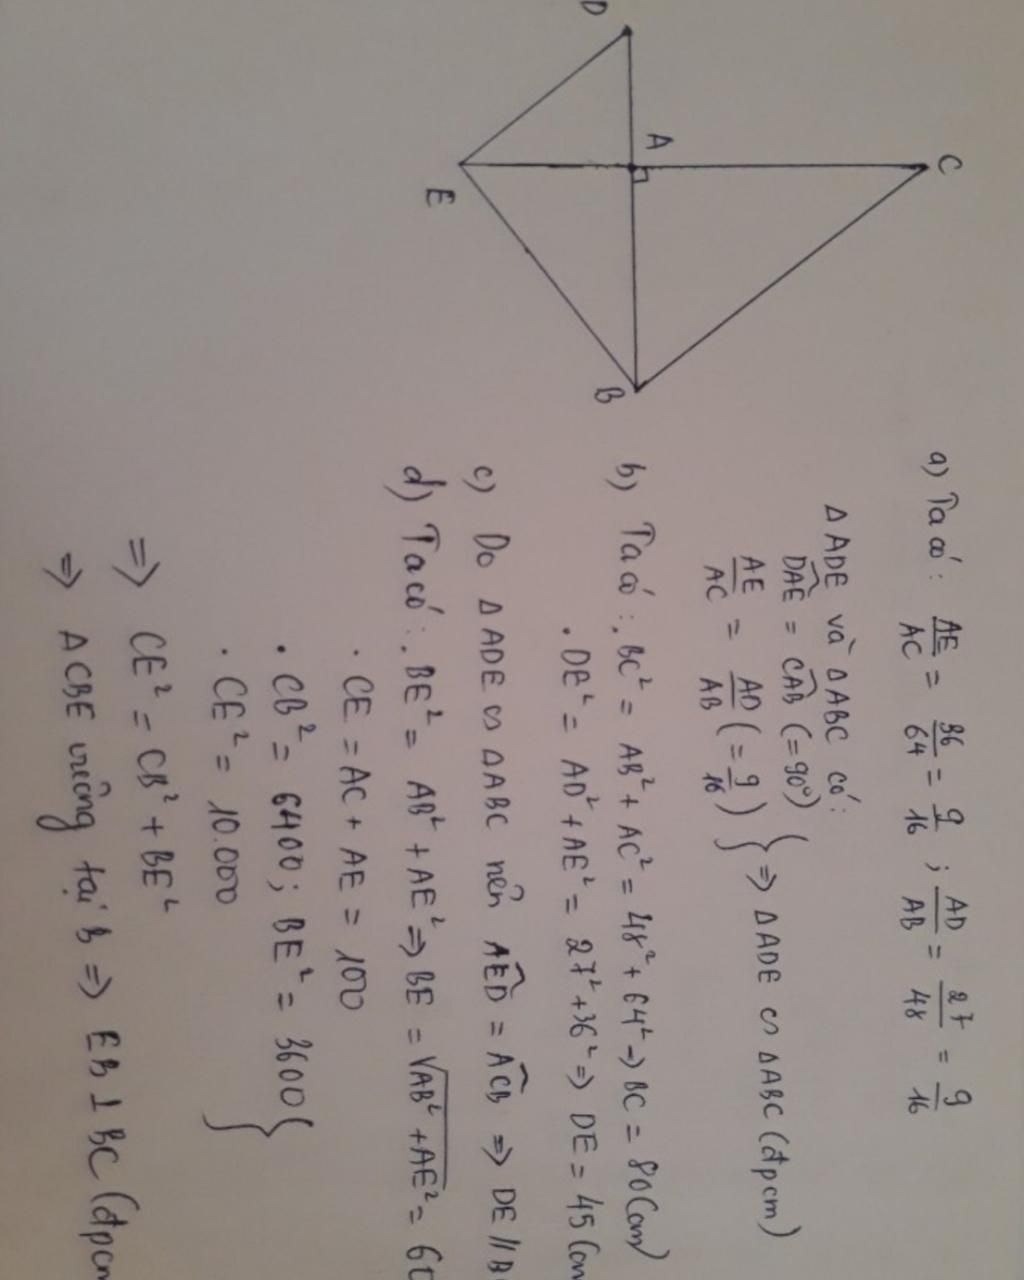 D
A
C
E
B
a) Ta có: AE/AC = 36/64 = 9/16 ; AD/AB = 27/48 = 9/16
Δ ADE và Δ ABC có:
DAE^ = CAB^ (=90°)
AE/AC = AD/AB (= 9/16) } => Δ ADE ∽ Δ ABC (đpcm)
b) Ta có: . BC² = AB² + AC² = 48² + 64² -> BC = 80 (cm)
. DE² = AD² + AE² = 27² + 36² => DE = 45 (cm
c) Do Δ ADE ∽ Δ ABC nên AED^ = ACB^ => DE // B
d) Ta có: . BE² = AB² + AE² => BE = √AB² + AE² = 60
. CE = AC + AE = 100
. CB² = 6400 ; BE² = 3600
. CE² = 10.000 }
=> CE² = CB² + BE²
=> ΔCBE vuông tại B => EB ⊥ BC (đpcm